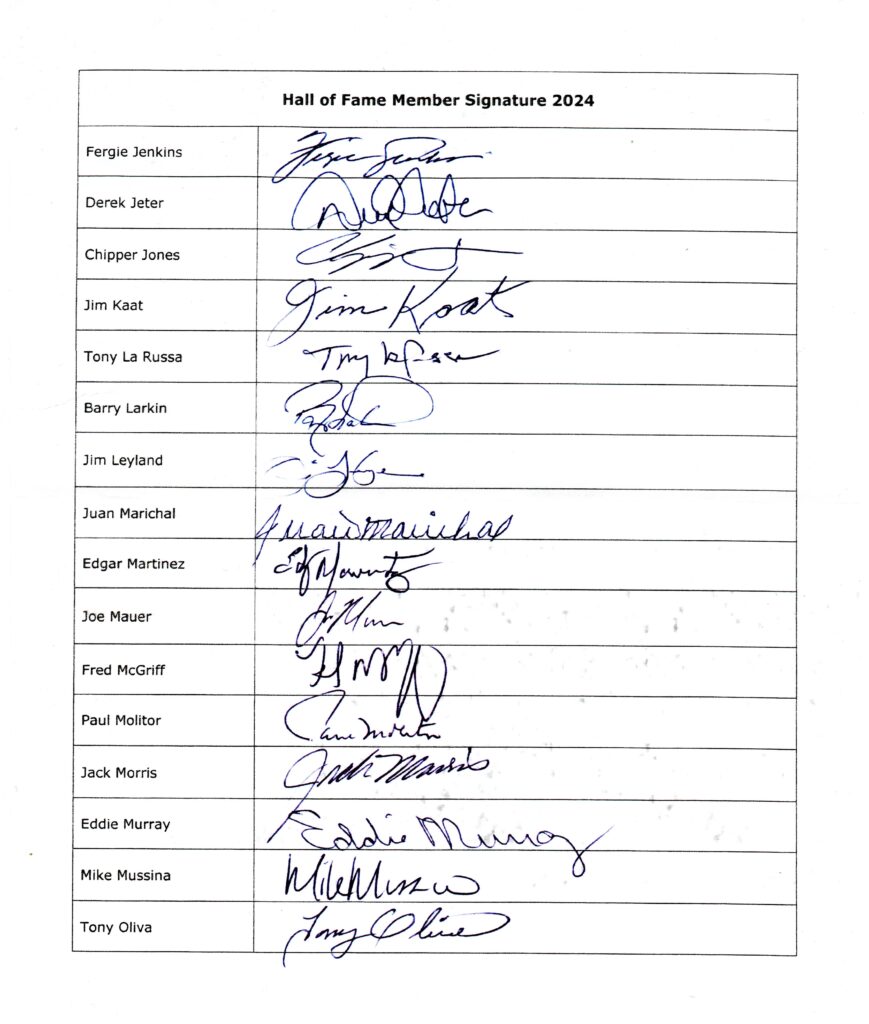 Hall of Fame Member Signature 2024
Fergie Jenkins Fergie Jenkins
Derek Jeter Derek Jeter
Chipper Jones
Jim Kaat Jim Kaat
Tony La Russa Tony La Russa
Barry Larkin
Jim Leyland
Juan Marichal Juan Marichal
Edgar Martinez
Joe Mauer
Fred McGriff
Paul Molitor Paul Molitor
Jack Morris Jack Morris
Eddie Murray Eddie Murray
Mike Mussina Mike Mussina
Tony Oliva Tony Oliva